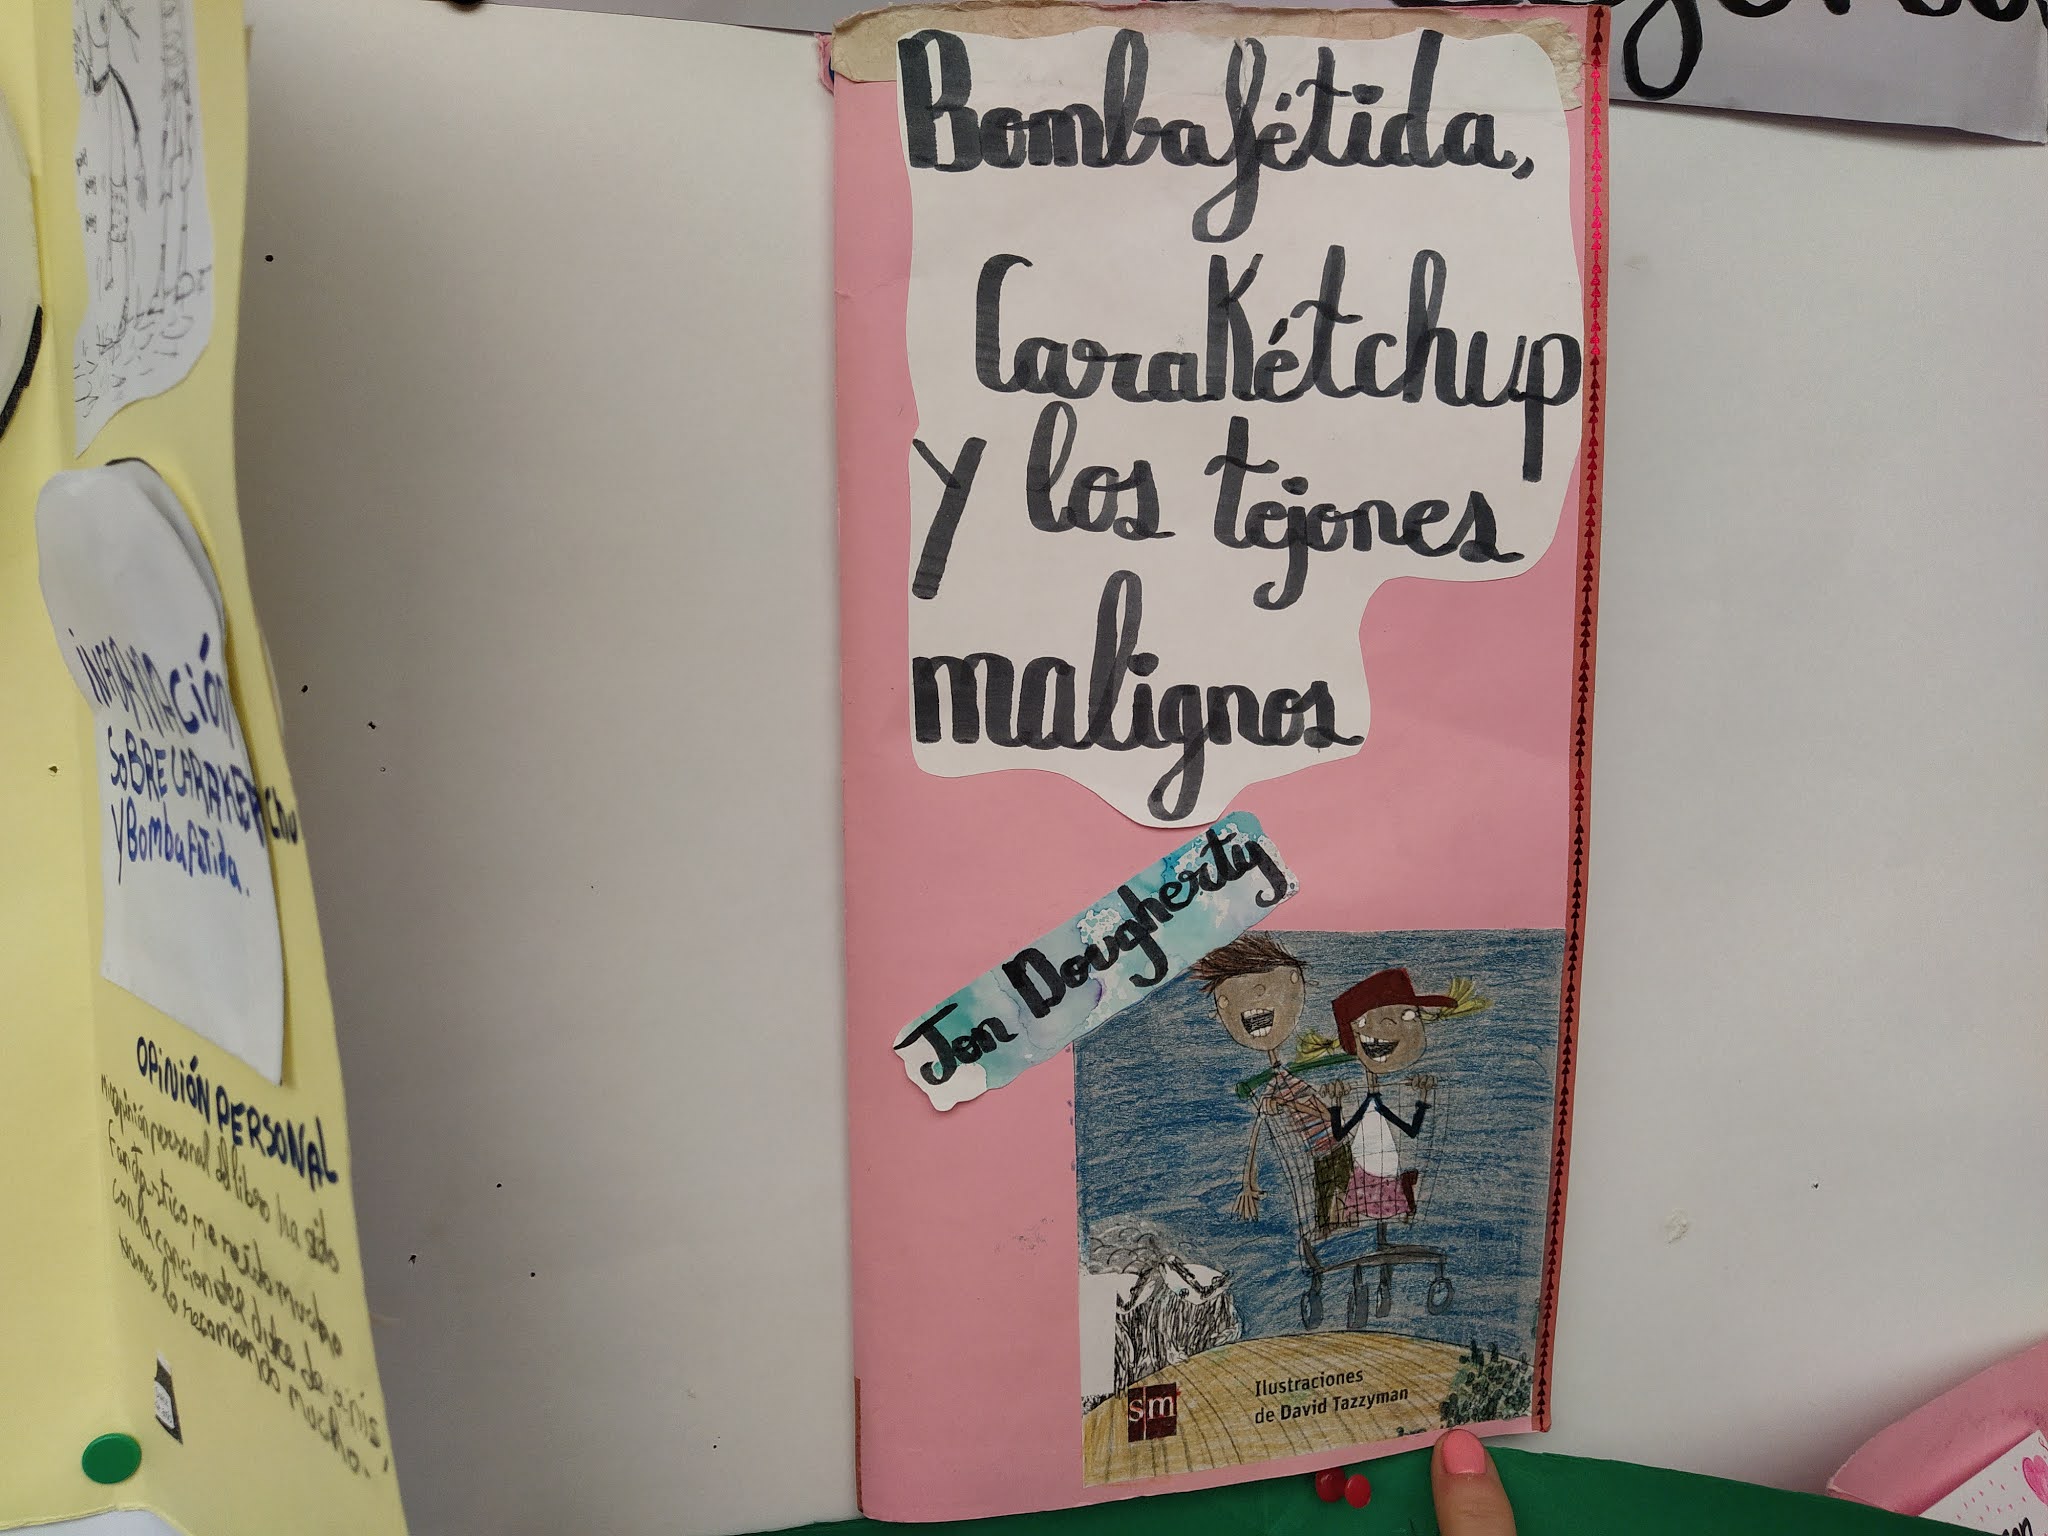 INFORMACIÓN
SOBRE CARAKETCHU
Y BombafeTida.
OPINIÓN PERSONAL
mi opinión personal del libro ha sido
Fantastico, me reido mucho
con la cancion del duke de
lo recomiendo mucho.
Bombafétida,
CaraKétchup
y los tejones
malignos
Jon Dougherty
sm
Ilustraciones
de David Tazzyman